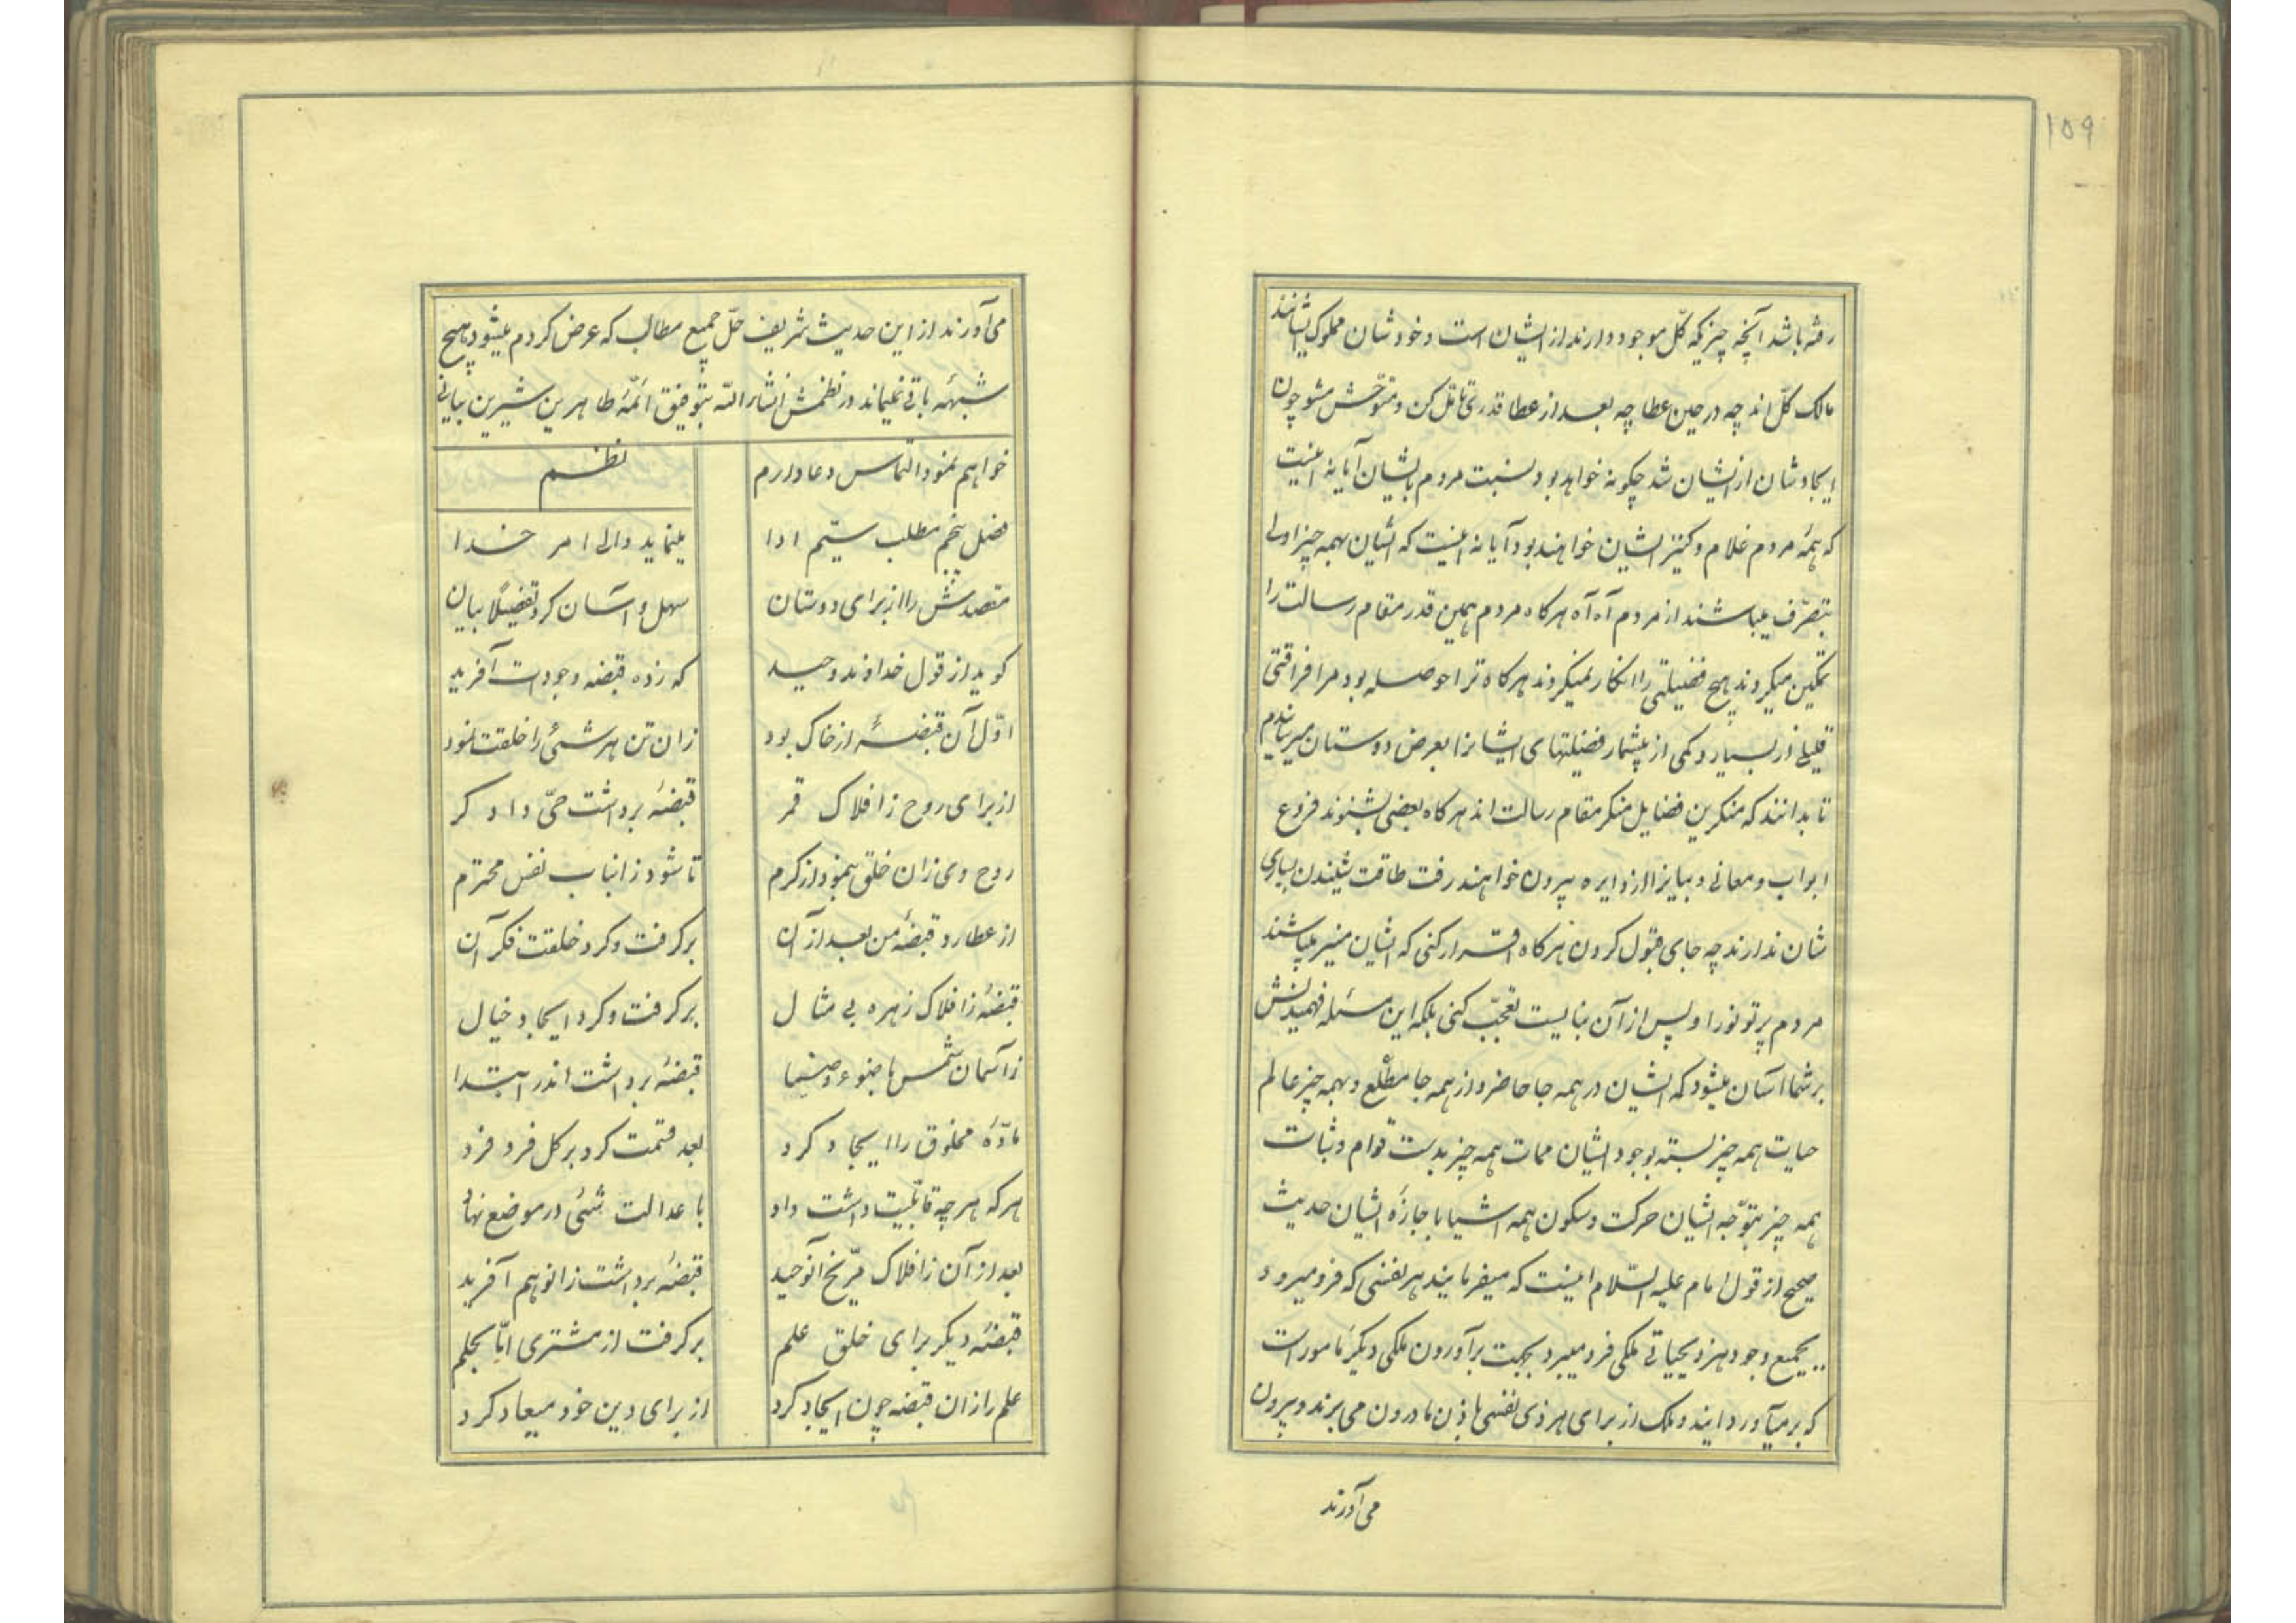 ۱۵۹
رفته باشد آنچه چیزیکه کلّ موجود دارند از ایشان است و خودشان مملوک ایشانند
مالک کلّ اند چه در حین عطا چه بعد از عطا قدری تامّل کن و متوحّش مشو چون
ایجادشان از ایشان شد چکونه خواهد بود نسبت مردم بایشان آیا نه اینست
که همۀ مردم غلام و کنیز ایشان خواهند بود آیا نه اینست که ایشان بهمه چیز اولی
بتصرّف میباشند از مردم آه آه هرکاه مردم همین قدر مقام رسالت را
تمکین میکردند هیچ فضیلتی را انکار نمیکردند هرکاه ترا حوصله بود مرا فراقتی
قلیلی از بسیار و کمی از بیشمار فضیلتهای ایشانرا بعرض دوستان میرساندیم
تا بدانند که منکرین فضایل منکر مقام رسالت اند هرکاه بعضی بشنوند فروع
ابواب و معانی و بیانرا از دایره بیرون خواهند رفت طاقت شنیدن بسیاری
شان ندارند چه جای قبول کردن هرکاه اقرار کنی که ایشان منیر میباشند
مردم پرتو نور او پس از آن نبایست تعجّب کنی بلکه این مسئله فهمیدنش
بر شما آسان میشود که ایشان در همه جا حاضر و از همه جا مطّلع و بهمه چیز عالم
حیات همه چیز بسته بوجود ایشان ممات همه چیز بدست قوام و ثبات
همه چیز بتوجّه ایشان حرکت و سکون همه اشیا باجازۀ ایشان حدیث
صحیح از قول امام علیه السّلام اینست که میفرمایند هر نفسی که فرو میرود
بجمیع وجود هر ذیحیاتی ملکی فرو میبرد بجهت برآوردن ملکی دیکر مامور است
که برمیآورد ایند و ملک از برای هر ذی نفسی باذن ما درون می برند و بیرون
می آورند
می آورند از این حدیث شریف حلّ جمیع مطالب که عرض کردم میشود هیچ
شبهۀ باقی نمیماند در نظمش انشاء الله بتوفیق ائمّۀ طاهرین شیرین بیانی
خواهم نمود التماس دعا دارم
نظم
فضل پنجم مطلب سیّم ادا	مینماید والی امر خدا
مقصدش را از برای دوستان	سهل و آسان کرد تفصیلاً بیان
کوید از قول خداوند وحید	که زده قبضه وجودت آفرید
اوّل آن قبضۀ از خاک بود	زان تن هر شیئ را خلقت نمود
از برای روح ز افلاک قمر	قبضۀ برداشت حیّ دادکر
روح وی زان خلق بنمود از کرم	تا شود زانباب نفس محترم
از عطارد قبضۀ من بعد از آن	برکرفت و کرد خلقت فکر آن
قبضۀ ز افلاک زهره بی مثال	برکرفت و کرد ایجاد خیال
ز آسمان شمس با ضوء و ضیا	قبضۀ برداشت اندر ابتدا
مادّۀ مخلوق را ایجاد کرد	بعد قسمت کرد بر کل فرد فرد
هر که هر چه قابلیّت داشت داد	با عدالت شیئ در موضع نهاد
بعد از آن ز افلاک مرّیخ آنوحید	قبضۀ برداشت زانو هم آفرید
قبضۀ دیکر برای خلق علم	برکرفت از مشتری امّا بحلم
علم را زان قبضه چون ایجاد کرد	از برای دین خود میعاد کرد